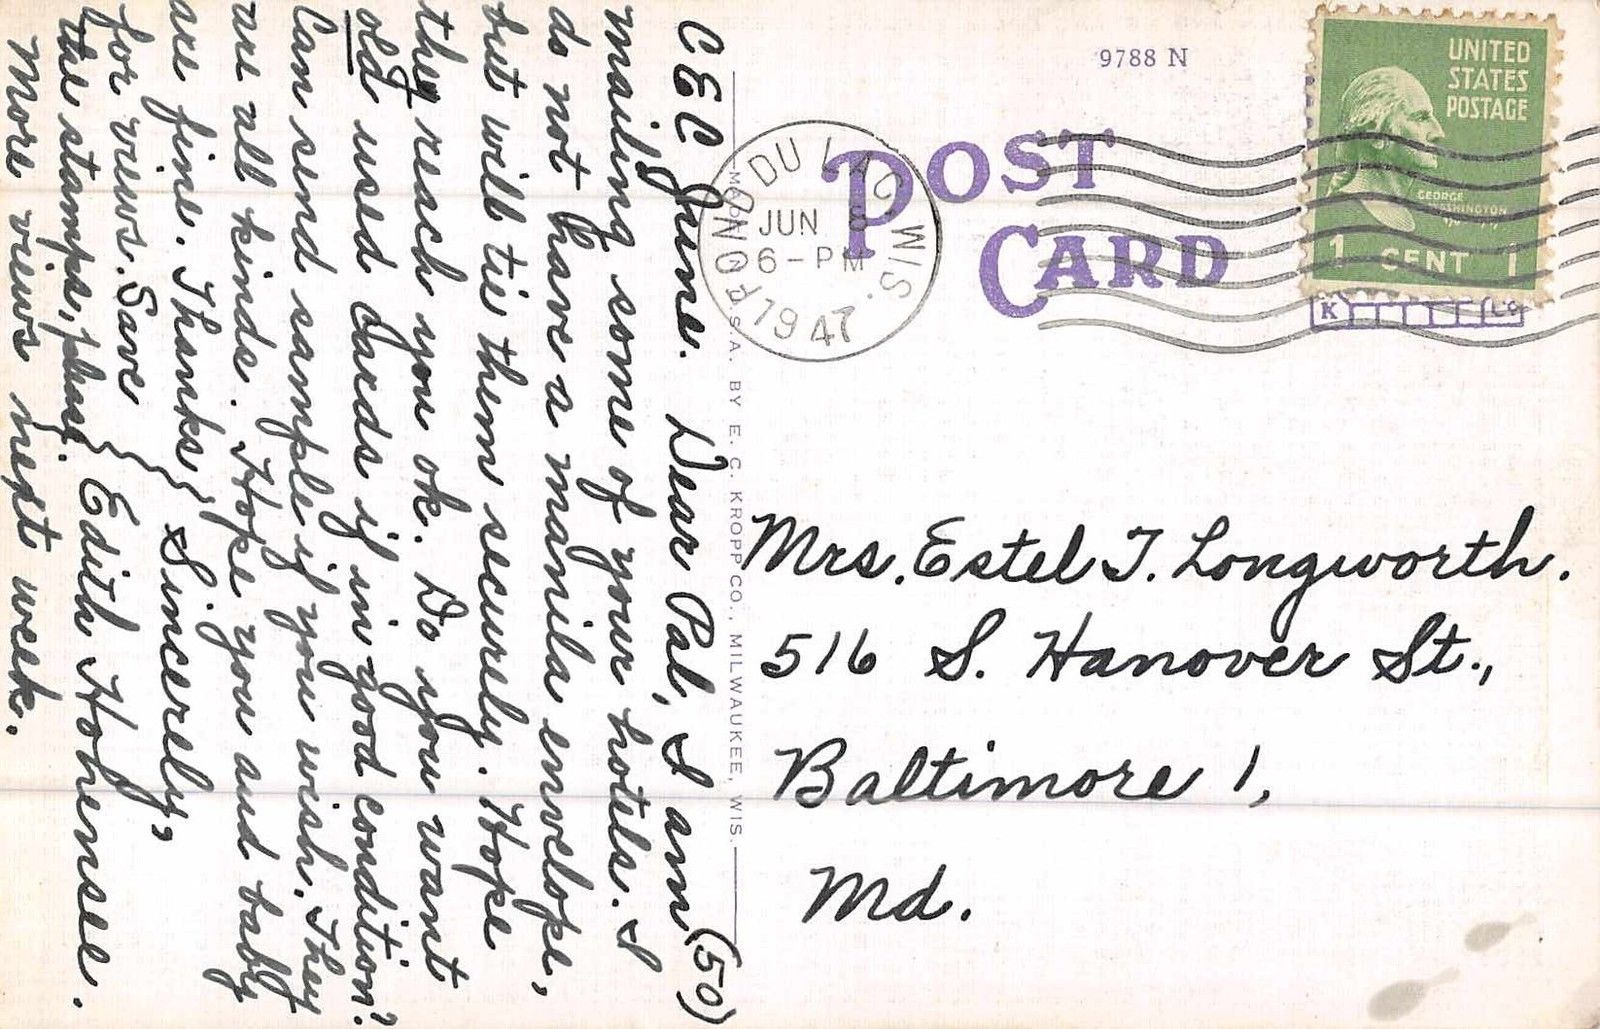 CEC June. Dear Pal, I am (50)
mailing some of your hotels. I
do not have a manila envelope,
but will tie them securely. Hope
they reach you ok. Do you want
old used cards if in good condition?
Can send sample if you wish. They
are all kinds. Hope you and baby
are fine. Thanks } Sincerely,
for views. Save }
the stamps, please. } Edith Hohensee.
More views next week.
MADE IN U.S.A. BY E. C. KROPP CO., MILWAUKEE, WIS.
9788 N
POST
CARD
FOND DU LAC WIS.
JUN 8
6-PM
1947
UNITED
STATES
POSTAGE
GEORGE
WASHINGTON
1 CENT 1
K Co
Mrs. Estel T. Longworth.
516 S. Hanover St.,
Baltimore 1,
Md.